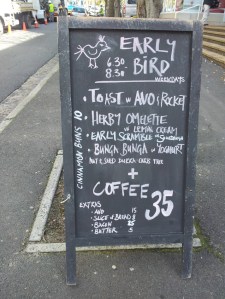 EARLY
BIRD
6.30
8.30
WEEKDAYS
• TOAST w AVO & ROCKET
• HERBY OMELETTE
w LEMON CREAM
• EARLY SCRAMBLE w
• BUNGA BUNGA w YOGHURT
NUT & SEED
+
COFFEE 35
CINNAMON BUNS 10
EXTRAS
- AVO 15
- SLICE of BREAD 8
- BACON
- BUTTER 5